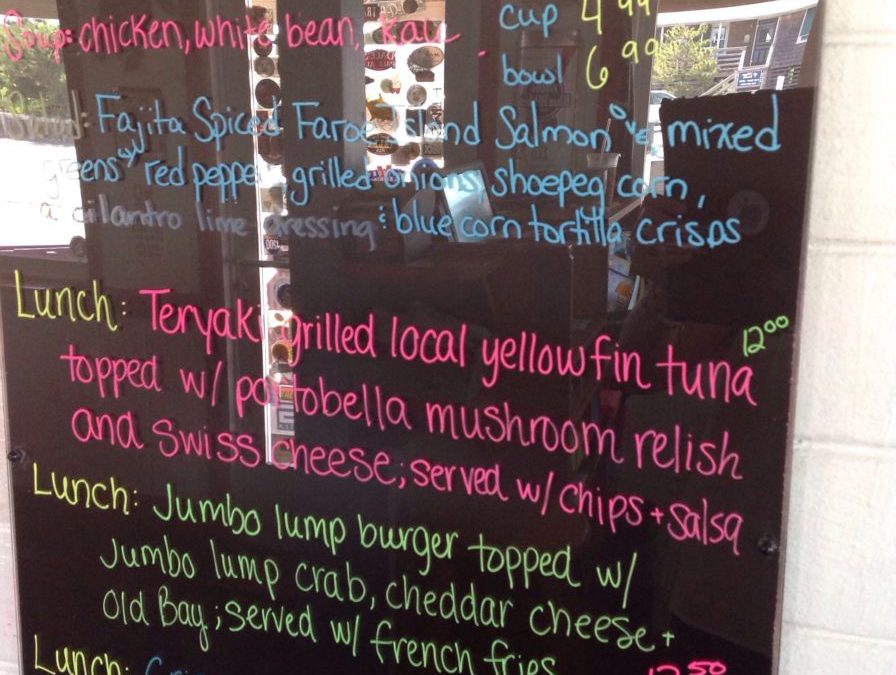 Soup: chicken, white bean, kale cup 4.99
bowl 6.99
Salad: Fajita Spiced Faroe Island Salmon over mixed
greens w/ red pepper, grilled onions, shoepeg corn,
a cilantro lime dressing & blue corn tortilla crisps
Lunch: Teryaki grilled local yellowfin tuna 12.00
topped w/ portobella mushroom relish
and swiss cheese; served w/ chips + salsa
Lunch: Jumbo lump burger topped w/
Jumbo lump crab, cheddar cheese +
Old Bay; served w/ french fries
Lunch: 12.50